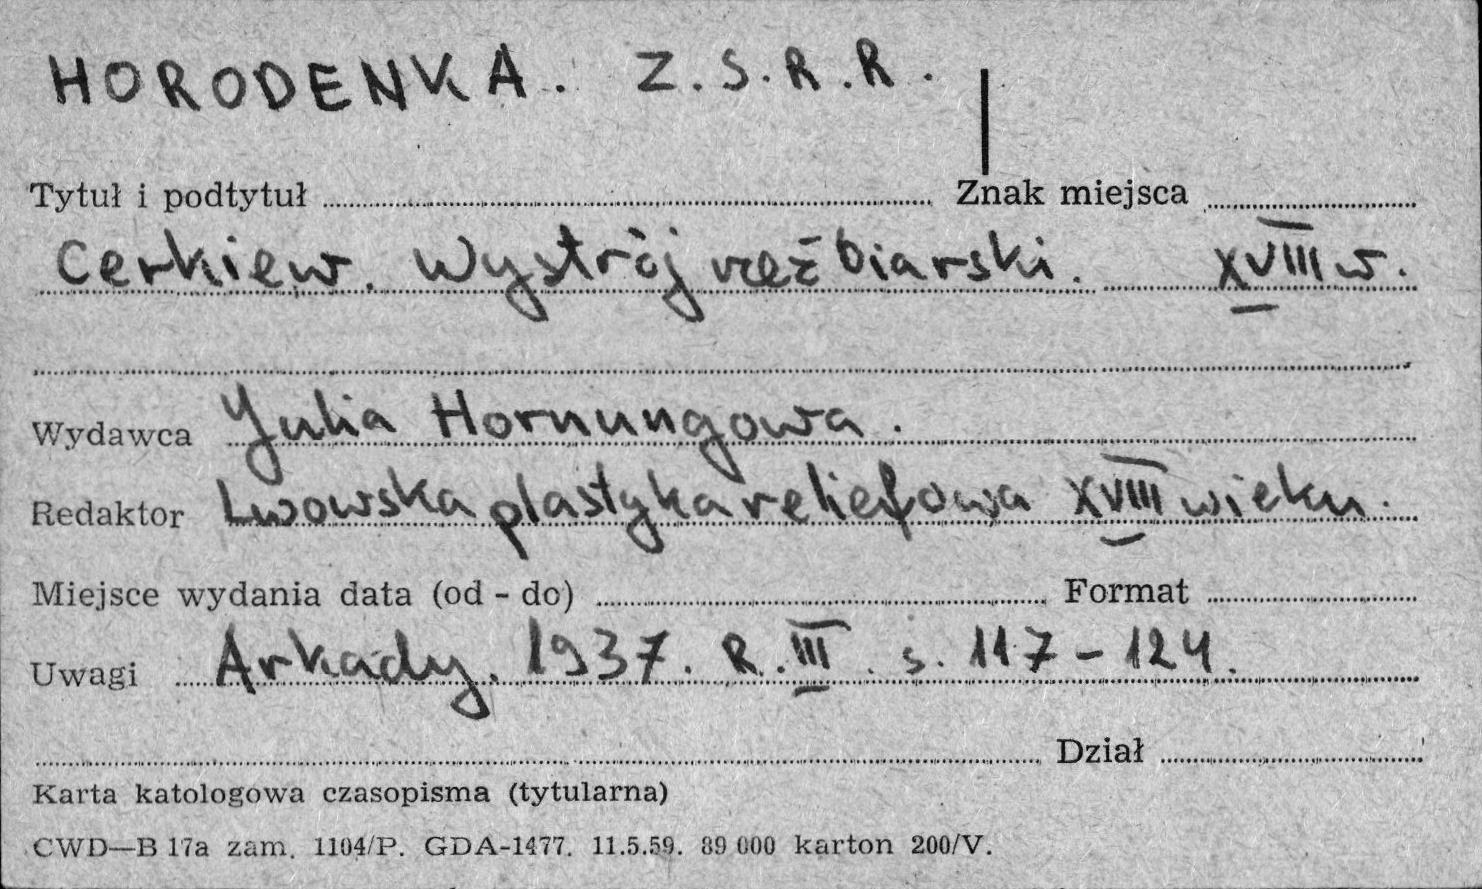 HORODENKA. Z.S.R.R.
Tytuł i podtytuł Znak miejsca
Cerkiew. Wystrój rzeźbiarski. XVIII w.
Wydawca Julia Hornungowa.
Redaktor Lwowska plastyka reliefowa XVIII wieku.
Miejsce wydania data (od - do) Format
Uwagi Arkady. 1937. R. III. s. 117-124.
Dział
Karta katologowa czasopisma (tytularna)
CWD—B 17a zam. 1104/P. GDA-1477. 11.5.59. 89 000 karton 200/V.